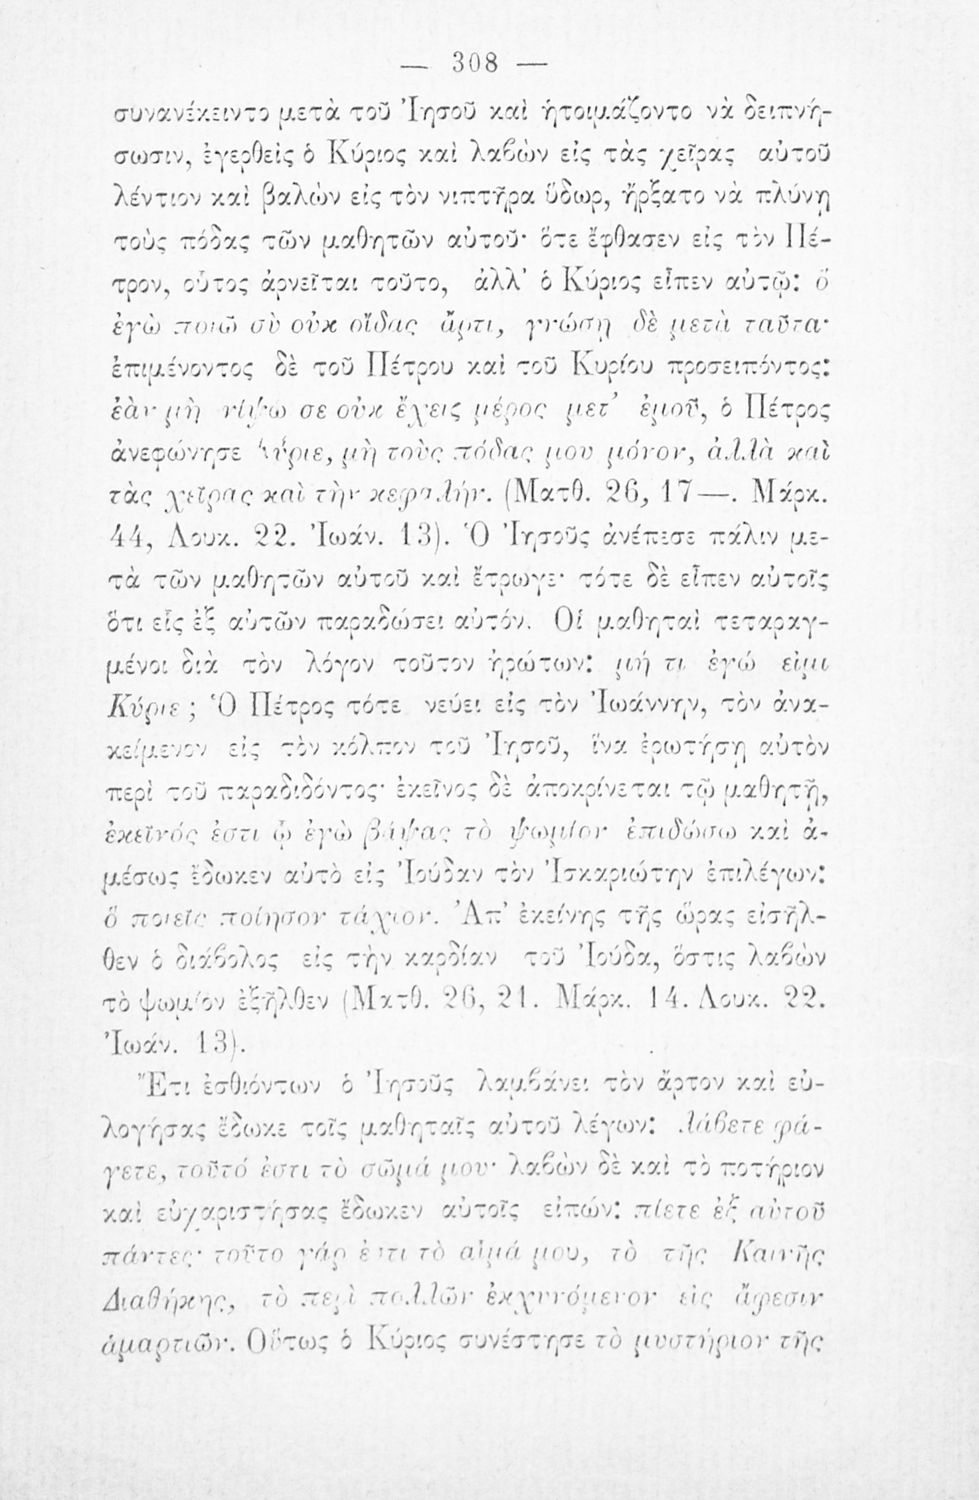 — 308 —
συνανέκειντο μετὰ τοῦ Ἰησοῦ καὶ ἡτοιμάζοντο νὰ δειπνή-
σωσιν, ἐγερθεὶς ὁ Κύριος καὶ λαβὼν εἰς τὰς χεῖρας αὐτοῦ
λέντιον καὶ βαλὼν εἰς τὸν νιπτῆρα ὕδωρ, ἤρξατο νὰ πλύνῃ
τοὺς πόδας τῶν μαθητῶν αὐτοῦ· ὅτε ἔφθασεν εἰς τὸν Πέ-
τρον, οὗτος ἀρνεῖται τοῦτο, ἀλλ' ὁ Κύριος εἶπεν αὐτῷ: ὃ
ἐγὼ ποιῶ σὺ οὐκ οἶδας ἄρτι, γνώσῃ δὲ μετὰ ταῦτα·
ἐπιμένοντος δὲ τοῦ Πέτρου καὶ τοῦ Κυρίου προσειπόντος:
ἐὰν μὴ νίψω σε οὐκ ἔχεις μέρος μετ' ἐμοῦ, ὁ Πέτρος
ἀνεφώνησε Κύριε, μὴ τοὺς πόδας μου μόνον, ἀλλὰ καὶ
τὰς χεῖρας καὶ τὴν κεφαλήν. (Ματθ. 26, 17—. Μάρκ.
44, Λουκ. 22. Ἰωάν. 13). Ὁ Ἰησοῦς ἀνέπεσε πάλιν με-
τὰ τῶν μαθητῶν αὐτοῦ καὶ ἔτρωγε· τότε δὲ εἶπεν αὐτοῖς
ὅτι εἷς ἐξ αὐτῶν παραδώσει αὐτόν. Οἱ μαθηταὶ τεταραγ-
μένοι διὰ τὸν λόγον τοῦτον ἠρώτων: μή τι ἐγώ εἰμι
Κύριε; Ὁ Πέτρος τότε νεύει εἰς τὸν Ἰωάννην, τὸν ἀνα-
κείμενον εἰς τὸν κόλπον τοῦ Ἰησοῦ, ἵνα ἐρωτήσῃ αὐτὸν
περὶ τοῦ παραδιδόντος· ἐκεῖνος δὲ ἀποκρίνεται τῷ μαθητῇ,
ἐκεῖνός ἐστι ᾧ ἐγὼ βάψας τὸ ψωμίον ἐπιδώσω καὶ ἀ-
μέσως ἔδωκεν αὐτὸ εἰς Ἰούδαν τὸν Ἰσκαριώτην ἐπιλέγων:
ὃ ποιεῖς ποίησον τάχιον. Ἀπ' ἐκείνης τῆς ὥρας εἰσῆλ-
θεν ὁ διάβολος εἰς τὴν καρδίαν τοῦ Ἰούδα, ὅστις λαβὼν
τὸ ψωμίον ἐξῆλθεν (Ματθ. 26, 21. Μάρκ. 14. Λουκ. 22.
Ἰωάν. 13).
Ἔτι ἐσθιόντων ὁ Ἰησοῦς λαμβάνει τὸν ἄρτον καὶ εὐ-
λογήσας ἔδωκε τοῖς μαθηταῖς αὐτοῦ λέγων: λάβετε φά-
γετε, τοῦτό ἐστι τὸ σῶμά μου· λαβὼν δὲ καὶ τὸ ποτήριον
καὶ εὐχαριστήσας ἔδωκεν αὐτοῖς εἰπών: πίετε ἐξ αὐτοῦ
πάντες· τοῦτο γάρ ἐστι τὸ αἷμά μου, τὸ τῆς Καινῆς
Διαθήκης, τὸ περὶ πολλῶν ἐκχυνόμενον εἰς ἄφεσιν
ἁμαρτιῶν. Οὕτως ὁ Κύριος συνέστησε τὸ μυστήριον τῆς